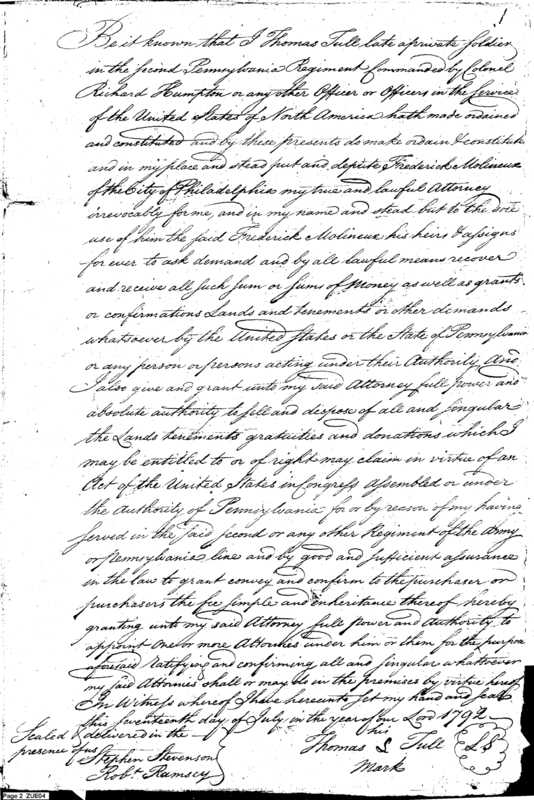 1
Be it known that I Thomas Tull late a private Soldier
in the second Pennsylvania Regiment Commanded by Colonel
Richard Humpton or any other Officer or Officers in the Service
of the United States of North America hath made ordained
and constituted and by these presents do make ordain & constitute
and in my place and stead put and depute Frederick Molineux
of the City of Philadelphia my true and lawful Attorney
irrevocably for me, and in my name and stead but to the sole
use of him the said Frederick Molineux his heirs & assigns
for ever to ask demand and by all lawful means recover
and receive all such sum or sums of Money as well as grants
or confirmations Lands and tenements or other demands
whatsoever by the United States or the State of Pennsylvania
or any person or persons acting under their Authority And
I also give and grant unto my said Attorney full power and
absolute authority to sell and dispose of all and singular
the Lands tenements gratuities and donations which I
may be entitled to or of right may claim in virtue of an
Act of the United States in Congress assembled or under
the Authority of Pennsylvania for or by reason of my having
served in the said second or any other Regiment of the Army
or Pennsylvania line and by good and sufficient assurance
in the law to grant convey and confirm to the purchaser or
purchasers the fee simple and inheritance thereof hereby
granting unto my said Attorney full power and Authority to
appoint One or more Attornies under him or them for the purpose
aforesaid ratifying and confirming all and singular whatsoever
my said Attornies shall or may do in the premises by virtue hereof
In Witness whereof I have hereunto set my hand and seal
this seventeenth day of July in the year of our Lord 1792
Sealed & delivered in the
presence of us
Stephen Stevenson
Robt. Ramsey
his
Thomas Tull
Mark
LS
Page 2 ZUE04